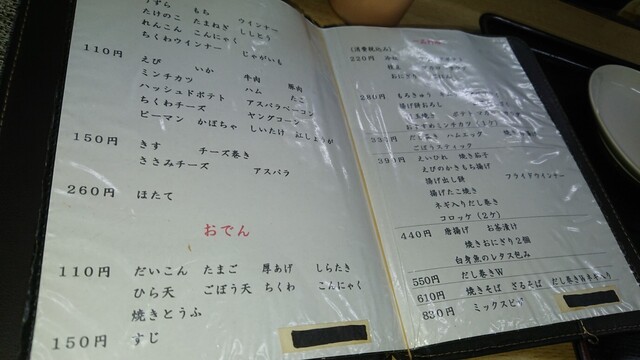 うずら もち ウインナー
たけのこ たまねぎ ししとう
れんこん こんにゃく
ちくわウインナー じゃがいも
110円 えび いか 牛肉 豚肉
ミンチカツ ハム たこ
ハッシュドポテト アスパラベーコン
ちくわチーズ ヤングコーン
ピーマン かぼちゃ しいたけ 紅しょうが
150円 きす チーズ巻き
ささみチーズ アスパラ
260円 ほたて
おでん
110円 だいこん たまご 厚あげ しらたき
ひら天 ごぼう天 ちくわ こんにゃく
焼きとうふ
150円 すじ
[消費税込み]
220円
280円 もろきゅう
揚げ餅おろし
おすすめミンチカツ
330円 ハムエッグ
ごぼうスティック
390円 えいひれ 焼き茄子
えびのかきもち揚げ
揚げ出し餅 フライドウインナー
揚げたこ焼き
ネギ入りだし巻き
コロッケ(2ケ)
440円 唐揚げ お茶漬け
焼きおにぎり2個
白身魚のレタス包み
550円 だし巻きW
610円 焼きそば ざるそば
830円 ミックスピザ